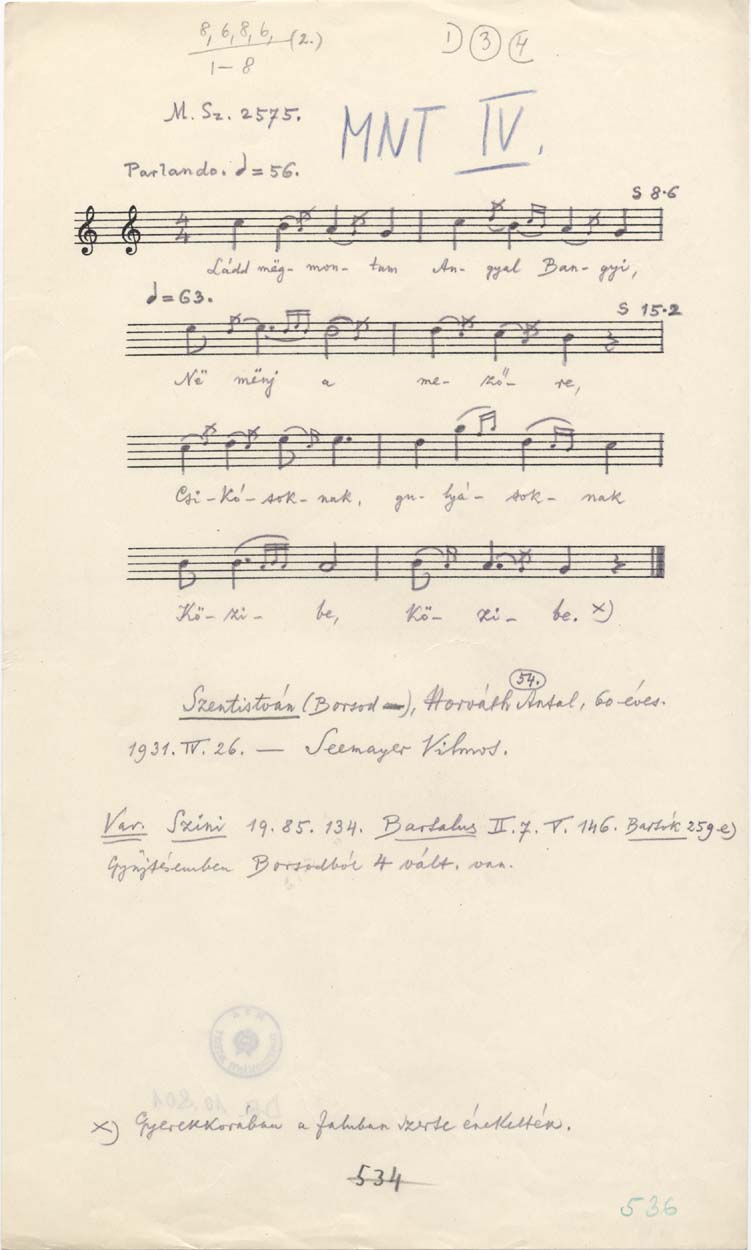 8, 6, 8, 6, (2.)
1-8
1) 3 4
M. Sz. 2575.
MNT IV.
Parlando. ♩=56.
S 8·6
4
4
Ládd mëg- mon- tam An- gyal Ban- gyi,
♩=63.
S 15·2
Në mënj a me- ző- re,
Csi-kó-sok-nak, gu-lyá-sok-nak
Kö-zi- be, Kö- zi- be. x)
54.
Szentistván (Borsod), Horváth Antal, 60 éves.
1931. IV. 26. — Seemayer Vilmos.
Var. Szini 19. 85. 134. Bartalus II. 7. V. 146. Bartók 259-e)
Gyűjtésemben Borsodból 4 vált. van.
x) Gyerekkorában a faluban szerte énekelték.
534
536